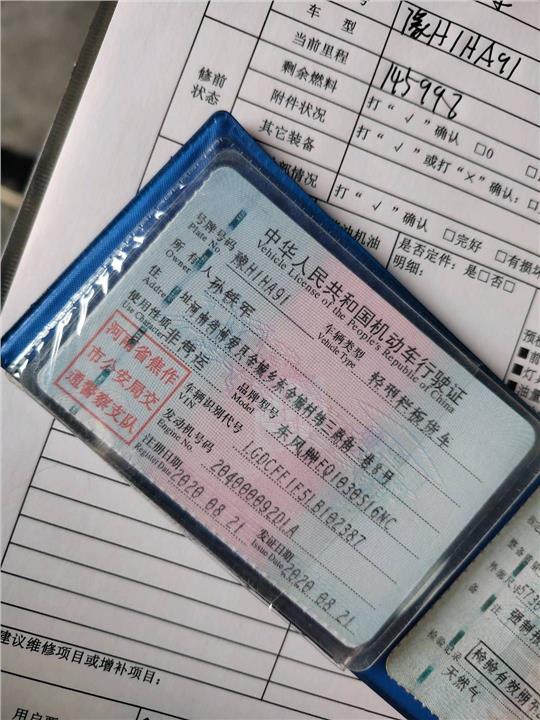 车 型
豫H1HA91
当前里程
145998
剩余燃料
打“√”确认 □0
附件状况
打“√”或打“×”确认:
其它装备
修前
状态
部情况
打“√”确认 □完好 □有损坏
机油
是否定件:是□否□
明细:
中华人民共和国机动车行驶证
Vehicle License of the People's Republic of China
号牌号码
Plate No.
豫H1HA91
车辆类型
Vehicle Type
轻型栏板货车
所有人
Owner
孙铁军
住 址
Address
使用性质
Use Character
非营运
品牌型号
Model
东风牌EQ1030S16NC
车辆识别代号
VIN
LGDCFE1F5LB102387
发动机号码
Engine No.
20400092D1A
注册日期
Register Date
2020.08.21
发证日期
Issue Date
2020.08.21
河南省焦作
市公安局交
通警察支队
备 注
强制报
检验记录
检验有效期
天然气
建议维修项目或增补项目: